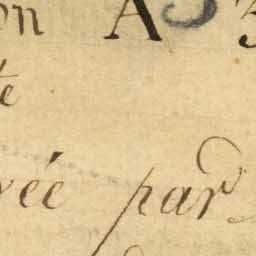 on A 3
te
vée par